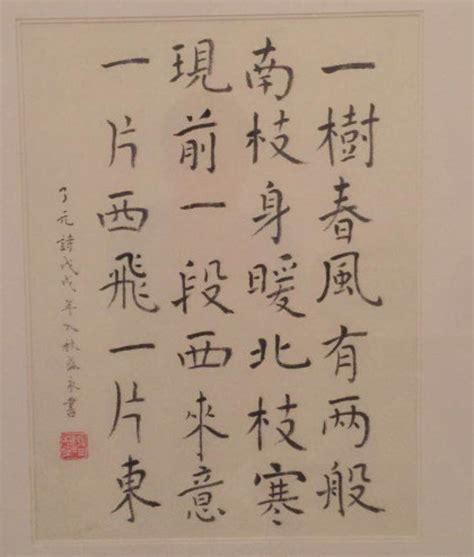 一樹春風有两般
南枝身暖北枝寒
現前一段西來意
一片西飛一片東
了元詩戊戌年入秋永書